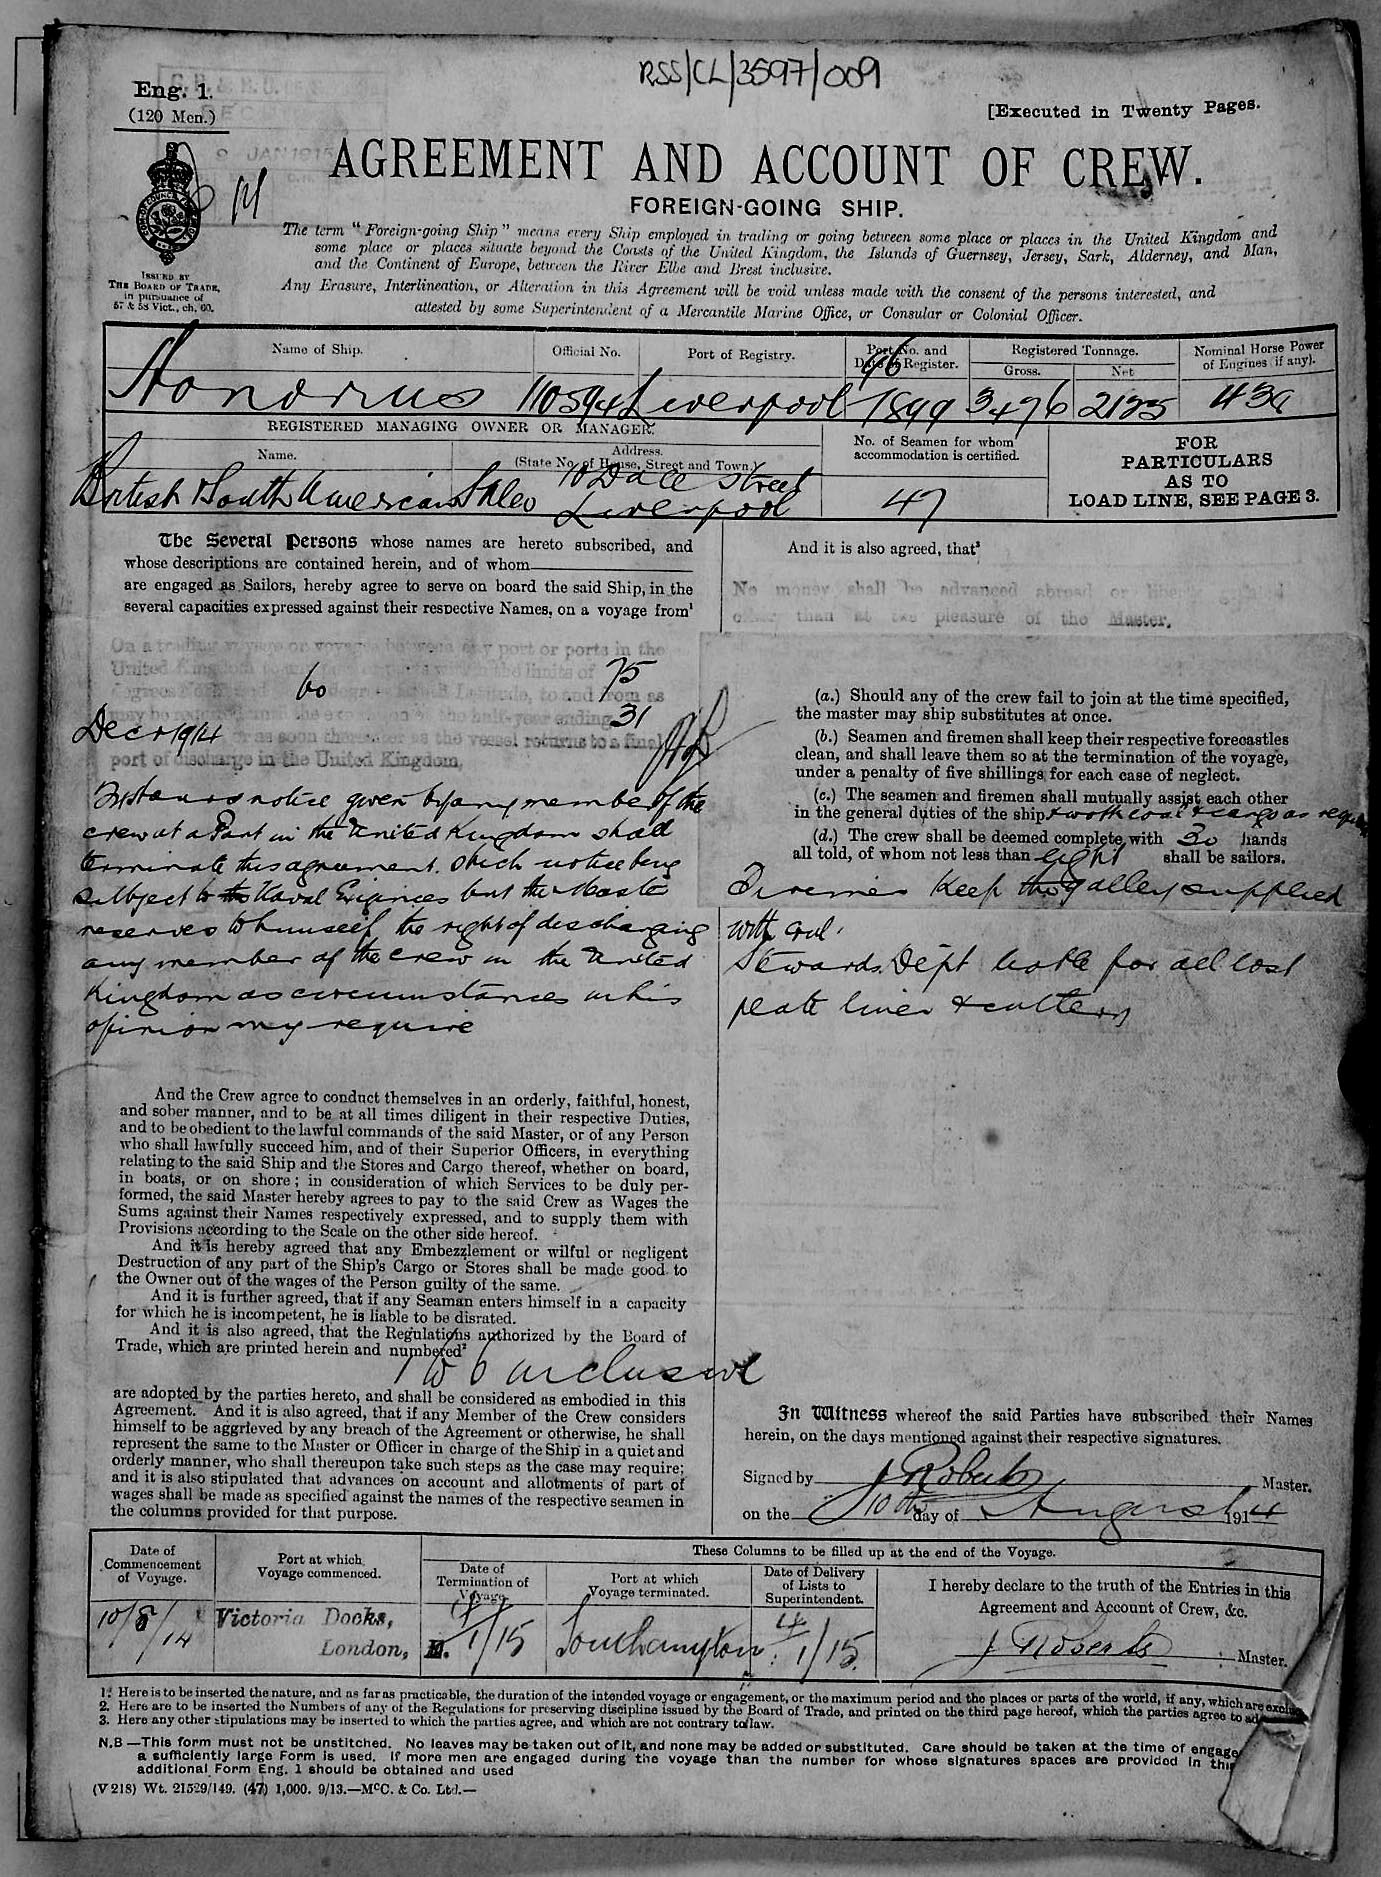 RSS/CL/3597/009
Eng. 1.
(120 Men.)
[Executed in Twenty Pages.
9 JAN 1915
AGREEMENT AND ACCOUNT OF CREW.
FOREIGN-GOING SHIP.
ISSUED BY
THE BOARD OF TRADE,
in pursuance of
57 & 58 Vict., ch. 60.
The term "Foreign-going Ship" means every Ship employed in trading or going between some place or places in the United Kingdom and
some place or places situate beyond the Coasts of the United Kingdom, the Islands of Guernsey, Jersey, Sark, Alderney, and Man,
and the Continent of Europe, between the River Elbe and Brest inclusive.
Any Erasure, Interlineation, or Alteration in this Agreement will be void unless made with the consent of the persons interested, and
attested by some Superintendent of a Mercantile Marine Office, or Consular or Colonial Officer.
Name of Ship. Official No. Port of Registry. Port No. and Date of Register. Registered Tonnage. Gross. Net Nominal Horse Power of Engines (if any).
Honorius 110594 Liverpool 96 1899 3476 2125 430
REGISTERED MANAGING OWNER OR MANAGER.
Name. Address. (State No. of House, Street and Town.) No. of Seamen for whom accommodation is certified.
British & South American S N Co 10 Dale Street Liverpool 47
FOR
PARTICULARS
AS TO
LOAD LINE, SEE PAGE 3.
The Several Persons whose names are hereto subscribed, and
whose descriptions are contained herein, and of whom
are engaged as Sailors, hereby agree to serve on board the said Ship, in the
several capacities expressed against their respective Names, on a voyage from¹
On a trading voyage or voyages between any port or ports in the
United Kingdom the limits of
75 60
degrees North and degrees South Latitude, to and from as
may be the expiration of the half-year ending 31
Dec 1914 as soon thereafter as the vessel returns to a final
port of discharge in the United Kingdom.
hours notice given by any member of the
crew at a Port in the United Kingdom shall
terminate this agreement. Such notice being
subject to the Naval Exigencies but the Master
reserves to himself the right of discharging
any member of the crew in the United
Kingdom as circumstances in his
opinion may require
And the Crew agree to conduct themselves in an orderly, faithful, honest,
and sober manner, and to be at all times diligent in their respective Duties,
and to be obedient to the lawful commands of the said Master, or of any Person
who shall lawfully succeed him, and of their Superior Officers, in everything
relating to the said Ship and the Stores and Cargo thereof, whether on board,
in boats, or on shore; in consideration of which Services to be duly per-
formed, the said Master hereby agrees to pay to the said Crew as Wages the
Sums against their Names respectively expressed, and to supply them with
Provisions according to the Scale on the other side hereof.
And it is hereby agreed that any Embezzlement or wilful or negligent
Destruction of any part of the Ship's Cargo or Stores shall be made good to
the Owner out of the wages of the Person guilty of the same.
And it is further agreed, that if any Seaman enters himself in a capacity
for which he is incompetent, he is liable to be disrated.
And it is also agreed, that the Regulations authorized by the Board of
Trade, which are printed herein and numbered²
1 to 6 inclusive
are adopted by the parties hereto, and shall be considered as embodied in this
Agreement. And it is also agreed, that if any Member of the Crew considers
himself to be aggrieved by any breach of the Agreement or otherwise, he shall
represent the same to the Master or Officer in charge of the Ship in a quiet and
orderly manner, who shall thereupon take such steps as the case may require;
and it is also stipulated that advances on account and allotments of part of
wages shall be made as specified against the names of the respective seamen in
the columns provided for that purpose.
And it is also agreed, that³
No money shall be advanced abroad or liberty granted
other than at the pleasure of the Master.
(a.) Should any of the crew fail to join at the time specified,
the master may ship substitutes at once.
(b.) Seamen and firemen shall keep their respective forecastles
clean, and shall leave them so at the termination of the voyage,
under a penalty of five shillings for each case of neglect.
(c.) The seamen and firemen shall mutually assist each other
in the general duties of the ship & work coal & cargo as required
(d.) The crew shall be deemed complete with 30 hands
all told, of whom not less than eight shall be sailors.
Firemen keep the galley supplied
with coal.
Stewards Dept liable for all lost
plate linen & cutlery
In Witness whereof the said Parties have subscribed their Names
herein, on the days mentioned against their respective signatures.
Signed by J Roberts Master.
on the 10th day of August 1914
Date of Commencement of Voyage. Port at which Voyage commenced. These Columns to be filled up at the end of the Voyage.
Date of Termination of Voyage. Port at which Voyage terminated. Date of Delivery of Lists to Superintendent.
I hereby declare to the truth of the Entries in this
Agreement and Account of Crew, &c.
10/8/14 Victoria Docks, London, 4/1/15 Southampton 4/1/15.
J Roberts Master.
1. Here is to be inserted the nature, and as far as practicable, the duration of the intended voyage or engagement, or the maximum period and the places or parts of the world, if any, which are
2. Here are to be inserted the Numbers of any of the Regulations for preserving discipline issued by the Board of Trade, and printed on the third page hereof, which the parties agree to
3. Here any other stipulations may be inserted to which the parties agree, and which are not contrary to law.
N.B—This form must not be unstitched. No leaves may be taken out of it, and none may be added or substituted. Care should be taken at the time of
a sufficiently large Form is used. If more men are engaged during the voyage than the number for whose signatures spaces are provided in
additional Form Eng. 1 should be obtained and used
(V 218) Wt. 21529/149. (47) 1,000. 9/13.—McC. & Co. Ltd.—